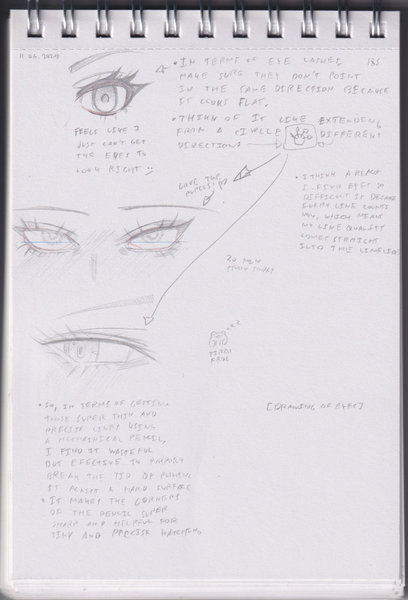 11.06.2024
• IN TERMS OF EYE LASHES,
MAKE SURE THEY DON'T POINT
IN THE SAME DIRECTION BECAUSE
IT LOOKS FLAT.
• THINK OF IT LIKE EXTENDING
FROM A CIRCLE
DIFFERENT
DIRECTIONS
FEELS LIKE I
JUST CAN'T GET
THE EYES TO
LOOK RIGHT :)
LOVE THE
PUPILS!
• I THINK A REASON
I FIND EYES SO
DIFFICULT IS BECAUSE
EVERY LINE COUNTS
WHICH MEANS
MY LINE QUALITY
COMES STRAIGHT
INTO THE LIMELIGHT
20 MIN
STUDY
ZZ
TIRED
FROG
• SO, IN TERMS OF GETTING
THOSE SUPER THIN AND
PRECISE LINES USING
A MECHANICAL PENCIL,
I FIND IT WASTEFUL
BUT EFFECTIVE TO PURPOSELY
BREAK THE TIP OF
IT AGAINST A HARD SURFACE
• IT MAKES THE CORNERS
OF THE PENCIL SUPER
SHARP AND HELPFUL FOR
TINY AND PRECISE HATCHING
[DRAWING OF EYES]